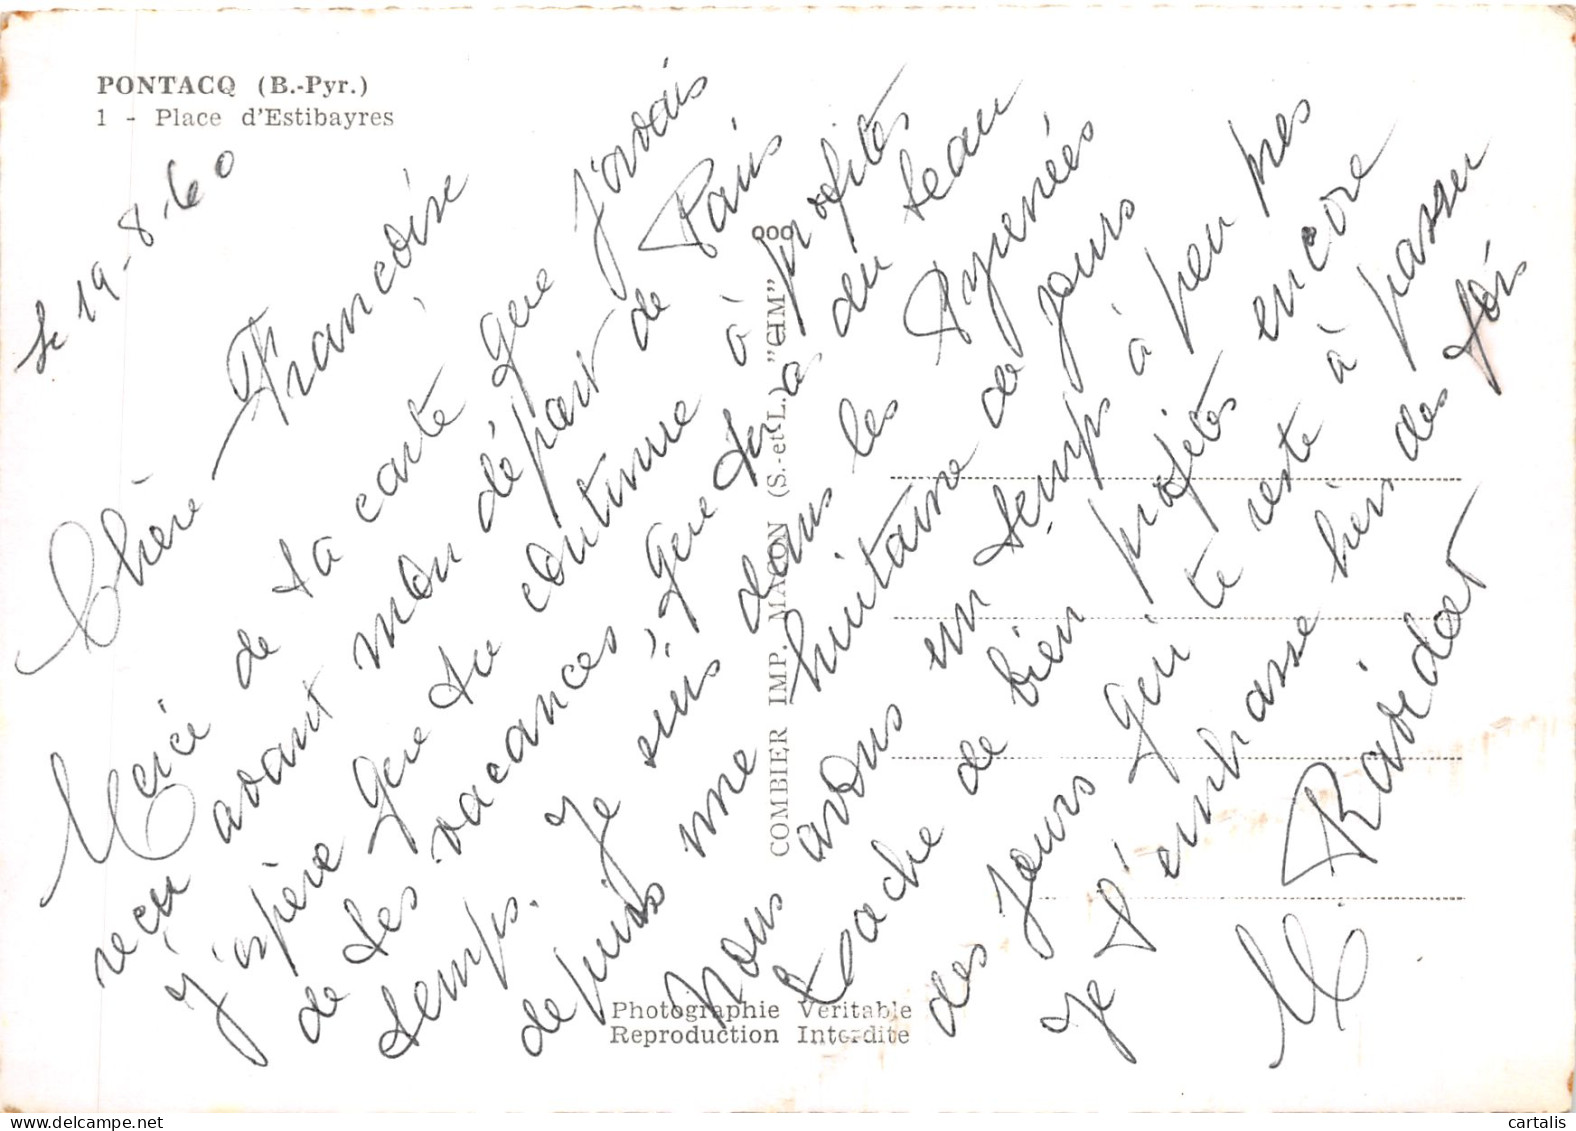 PONTACQ (B.-Pyr.)
1 - Place d'Estibayres
Le 19-8-60
Chère Françoise
Merci de ta carte que j'avais
reçu avant mon départ de Paris
J'espère que tu continue à profiter
de tes vacances, que tu a du beau
temps. Je suis dans les Pyrenées
depuis une huitaine de jours
Nous avons un temps à peu pres
Tache de bien profiter encore
des jours qui te reste à passer
Je t'embrasse bien des fois
M.
COMBIER IMP. MACON (S.-et-L.) "CIM"
Photographie Véritable
Reproduction Interdite
cartalis.com